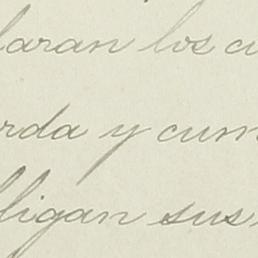 laran los cu
rda y cum
ligan sus